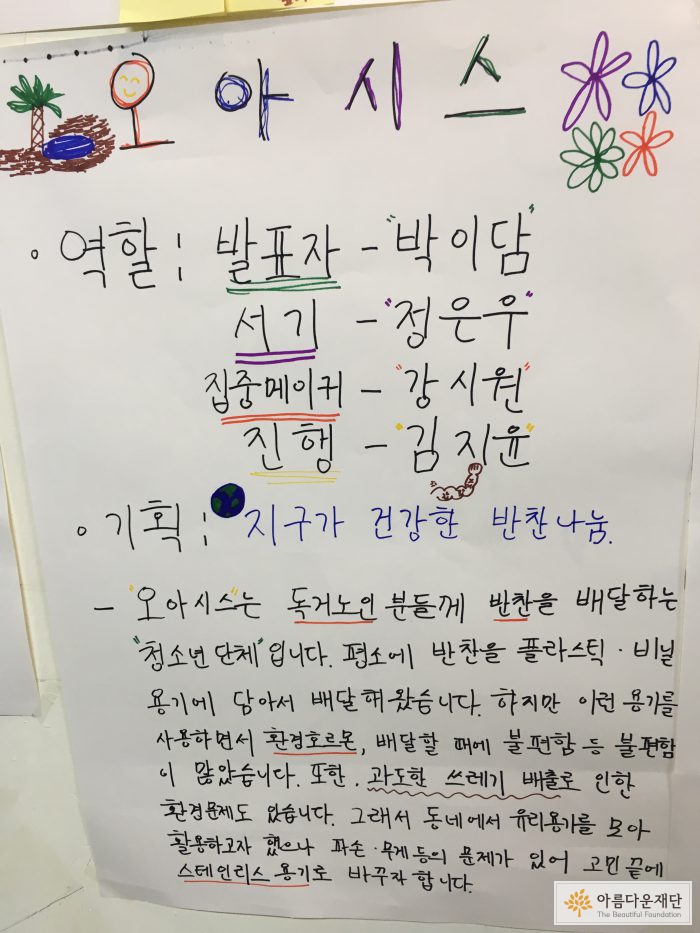 오아시스
• 역할 : 발표자 - "박이담"
서기 - "정은우"
집중메이커 - "강시원"
진행 - "김지윤"
• 기획 : 지구가 건강한 반찬나눔.
- "오아시스"는 독거노인 분들께 반찬을 배달하는
"청소년 단체"입니다. 평소에 반찬을 플라스틱 · 비닐
용기에 담아서 배달해왔습니다. 하지만 이런 용기를
사용하면서 환경호르몬, 배달할 때에 불편함 등 불편함
이 많았습니다. 또한, 과도한 쓰레기 배출로 인한
환경문제도 있습니다. 그래서 동네에서 유리용기를 모아
활용하고자 했으나 파손 · 무게 등의 문제가 있어 고민 끝에
스테인리스 용기로 바꾸자 합니다.
아름다운재단
The Beautiful Foundation